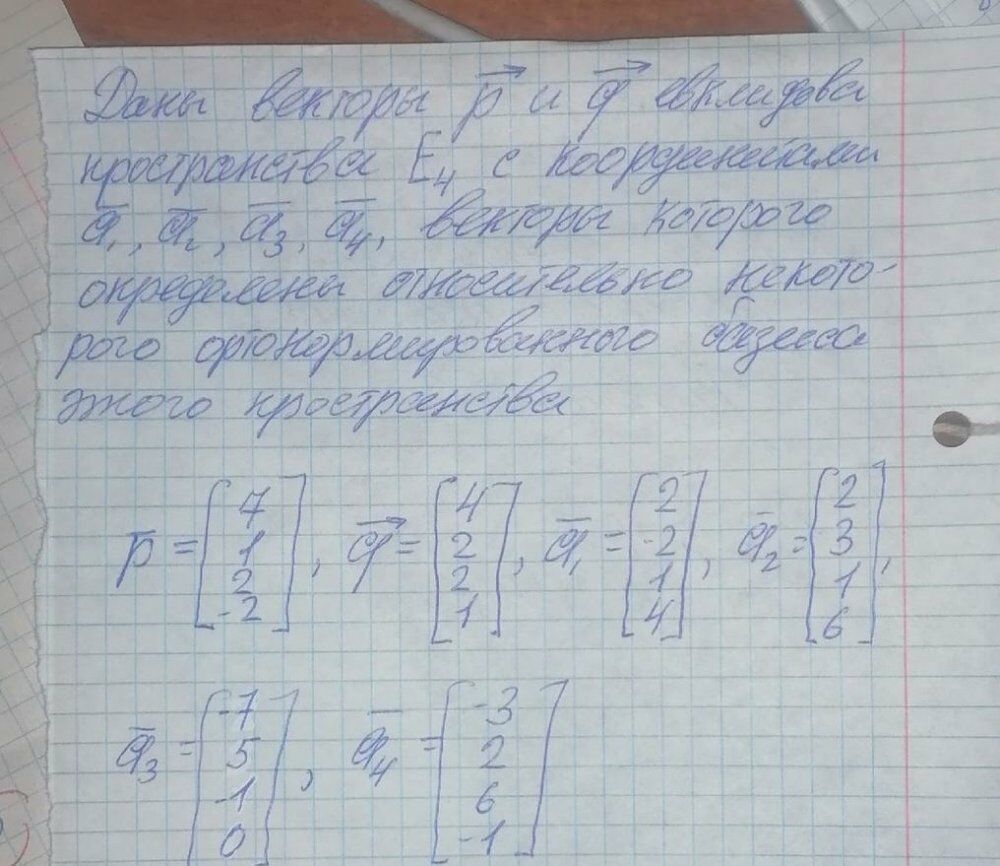 Даны векторы p и q евклидова
пространства E4 с координатами
q1, q2, q3, q4, векторы которого
определены относительно некото-
рого ортонормированного базиса
этого пространства
p = [7 1 2 -2], q = [4 2 2 1], q1 = [2 -2 1 4], q2 = [2 3 1 6],
q3 = [-7 5 -1 0], q4 = [-3 2 6 -1]